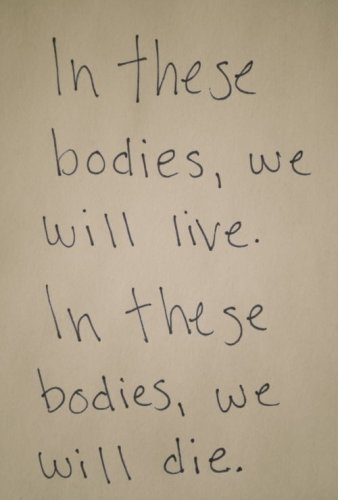 In these
bodies, we
will live.
In these
bodies, we
will die.